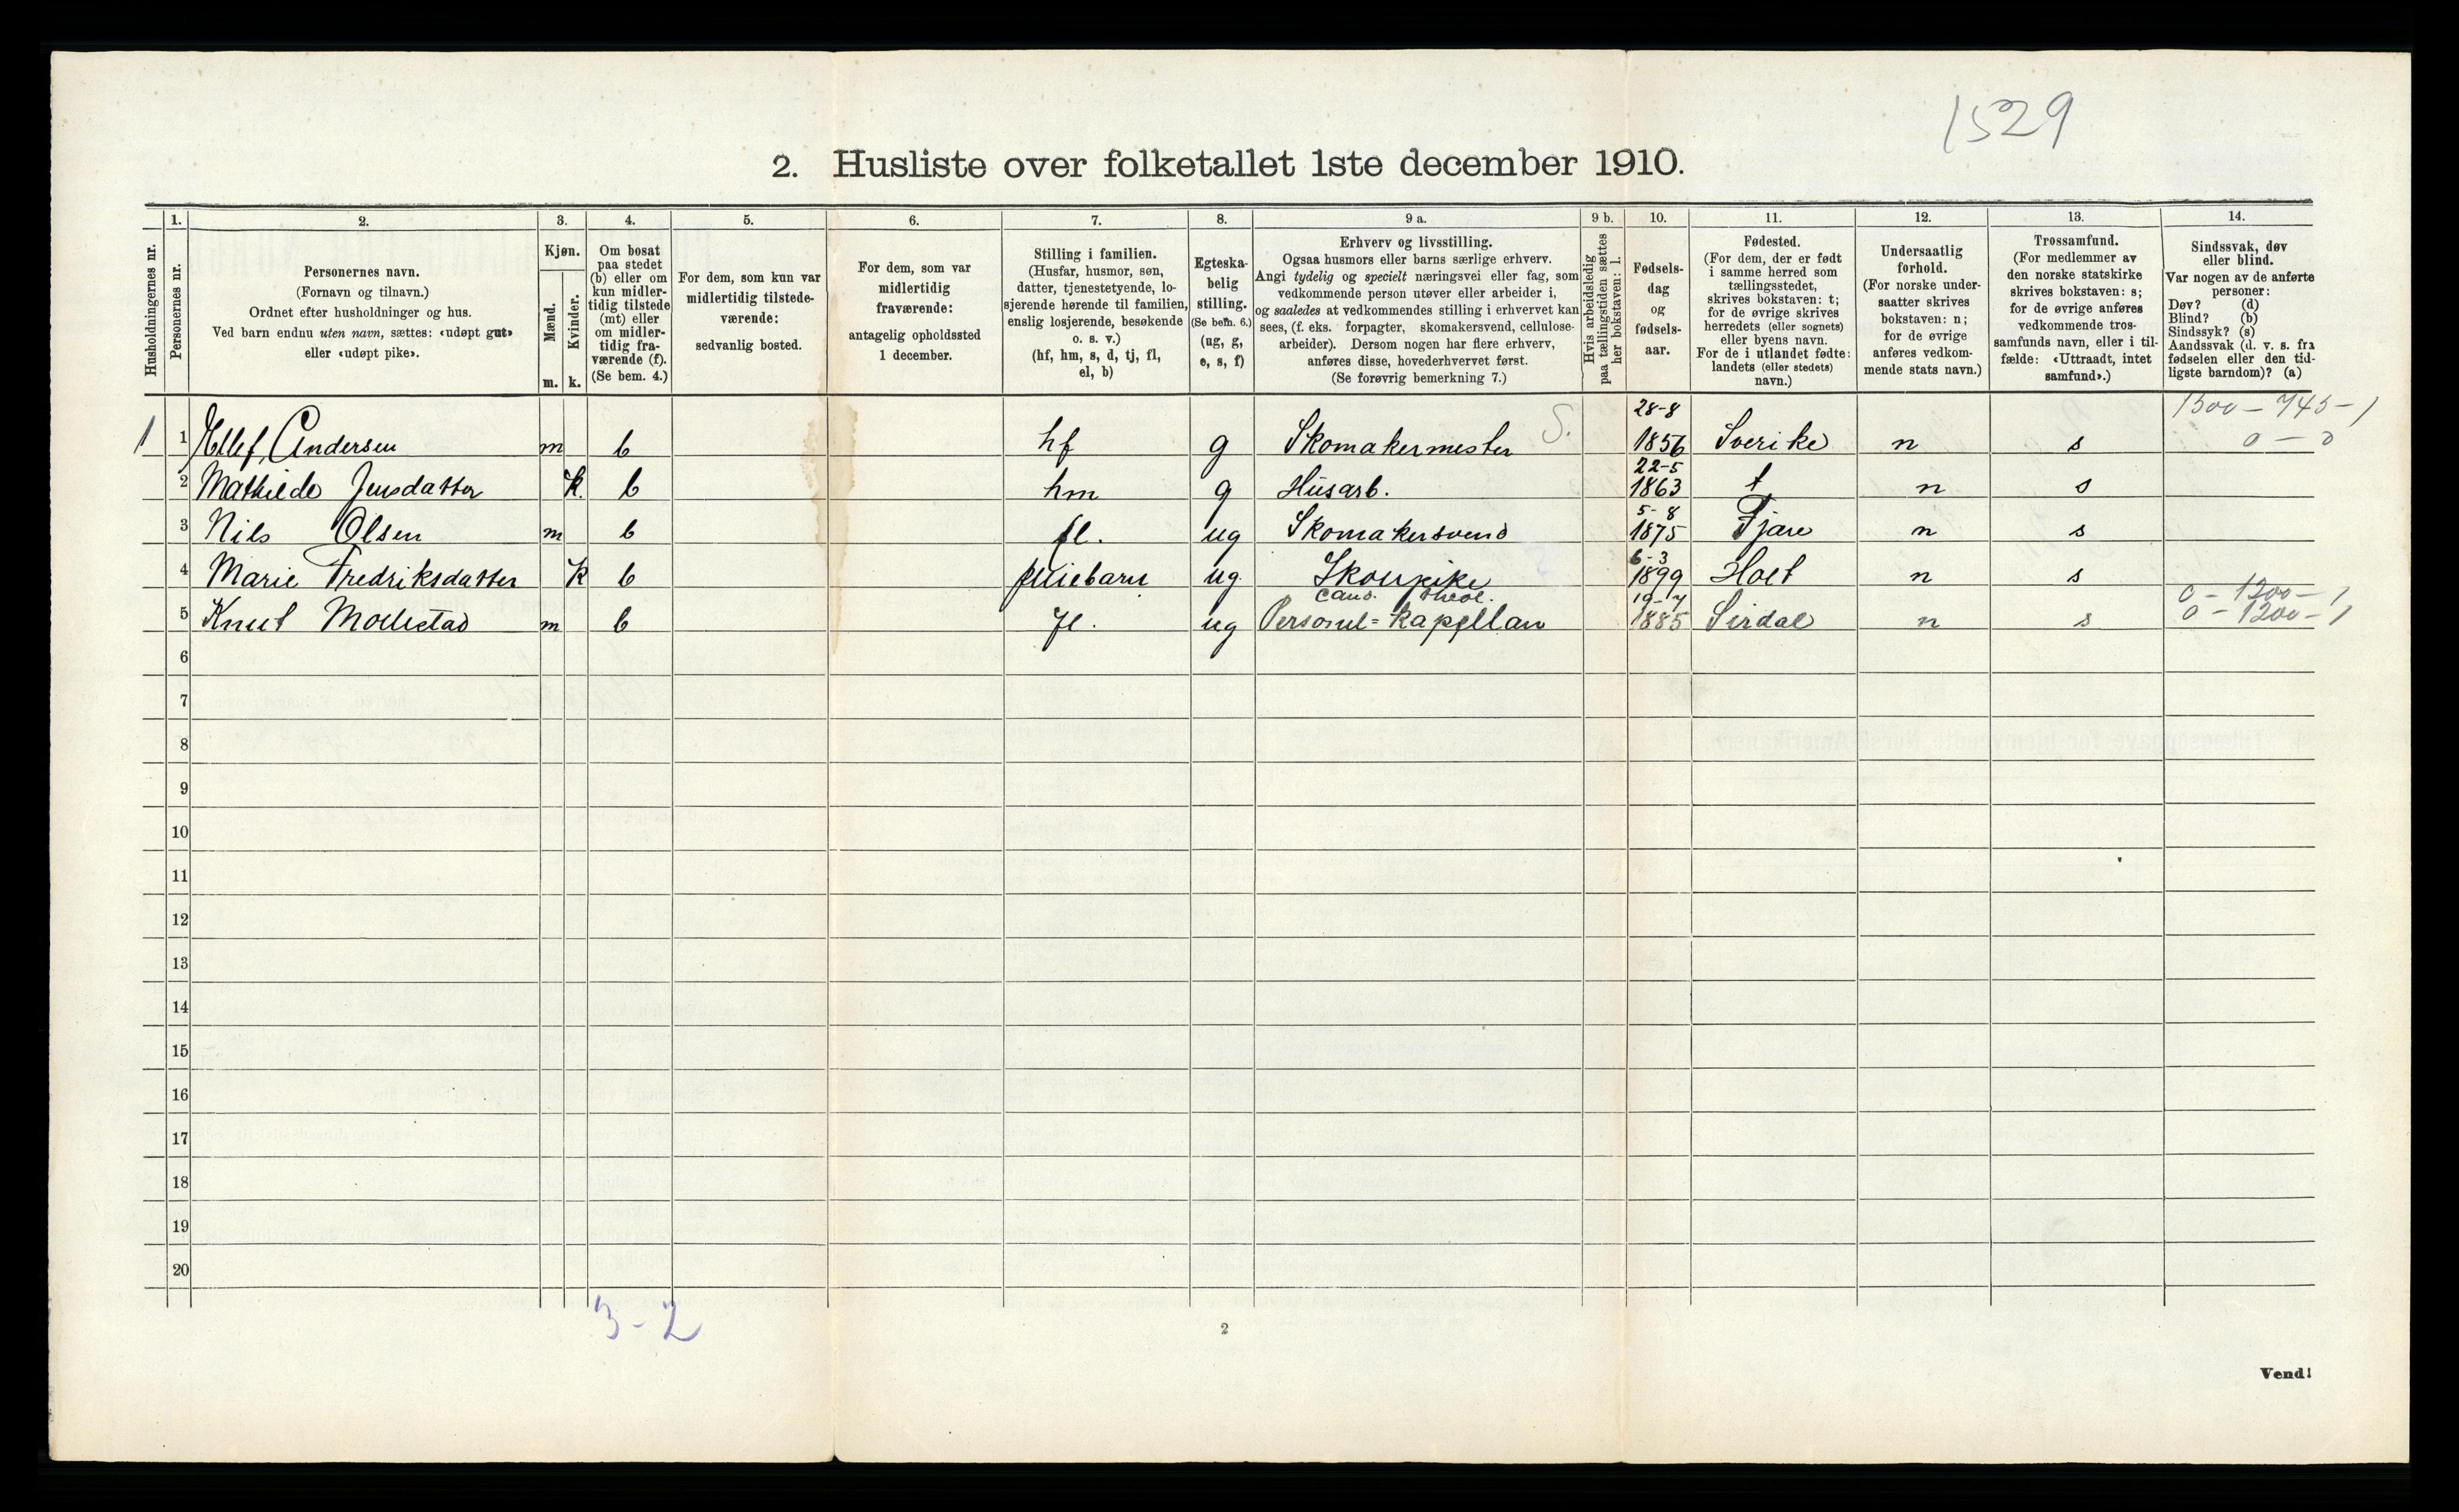 1529
2. Husliste over folketallet 1ste december 1910.
Husholdningernes nr.
1.
Personernes nr.
2.
Personernes navn.
(Fornavn og tilnavn.)
Ordnet efter husholdninger og hus.
Ved barn endnu uten navn, sættes: «udøpt gut»
eller «udøpt pike».
3.
Kjøn.
Mænd.
m.
Kvinder.
k.
4.
Om bosat
paa stedet
(b) eller om
kun midler-
tidig tilstede
(mt) eller
om midler-
tidig fra-
værende (f).
(Se bem. 4.)
5.
For dem, som kun var
midlertidig tilstede-
værende:
sedvanlig bosted.
6.
For dem, som var
midlertidig
fraværende:
antagelig opholdssted
1 december.
7.
Stilling i familien.
(Husfar, husmor, søn,
datter, tjenestetyende, lo-
sjerende hørende til familien,
enslig losjerende, besøkende
o. s. v.)
(hf, hm, s, d, tj, fl,
el, b)
8.
Egteska-
belig
stilling.
(Se bem. 6.)
(ug, g,
e, s, f)
9 a.
Erhverv og livsstilling.
Ogsaa husmors eller barns særlige erhverv.
Angi tydelig og specielt næringsvei eller fag, som
vedkommende person utøver eller arbeider i,
og saaledes at vedkommendes stilling i erhvervet kan
sees, (f. eks. forpagter, skomakersvend, cellulose-
arbeider). Dersom nogen har flere erhverv,
anføres disse, hovederhvervet først.
(Se forøvrig bemerkning 7.)
9 b.
Hvis arbeidsledig
paa tællingstiden sættes
her bokstaven: l.
10.
Fødsels-
dag
og
fødsels-
aar.
11.
Fødested.
(For dem, der er født
i samme herred som
tællingsstedet,
skrives bokstaven: t;
for de øvrige skrives
herredets (eller sognets)
eller byens navn.
For de i utlandet fødte:
landets (eller stedets)
navn.)
12.
Undersaatlig
forhold.
(For norske under-
saatter skrives
bokstaven: n;
for de øvrige
anføres vedkom-
mende stats navn.)
13.
Trossamfund.
(For medlemmer av
den norske statskirke
skrives bokstaven: s;
for de øvrige anføres
vedkommende tros-
samfunds navn, eller i til-
fælde: «Uttraadt, intet
samfund».)
14.
Sindssvak, døv
eller blind.
Var nogen av de anførte
personer:
Døv? (d)
Blind? (b)
Sindssyk? (s)
Aandssvak (d. v. s. fra
fødselen eller den tid-
ligste barndom)? (a)
28-8 1500 - 745 - 1
1 1 Ellef Andersen m b hf g Skomakermester S. 1856 Sverike n s 0 - 0
22-5
2 Mathilde Jensdatter k. b hm g Husarb. 1863 t n s
5-8
3 Nils Olsen m b fl. ug Skomakersvend 1875 Fjære n s
6-3
4 Marie Fredriksdatter k b pleiebarn ug. Skolepike 1899 Holt n s
cand. theol. 19-7 0 - 1200 - 1
5 Knut m b fl. ug Personel=kapellan 1885 Sirdal n s 0 - 1200 - 1
6
7
8
9
10
11
12
13
14
15
16
17
18
19
20
3-2
2
Vend!